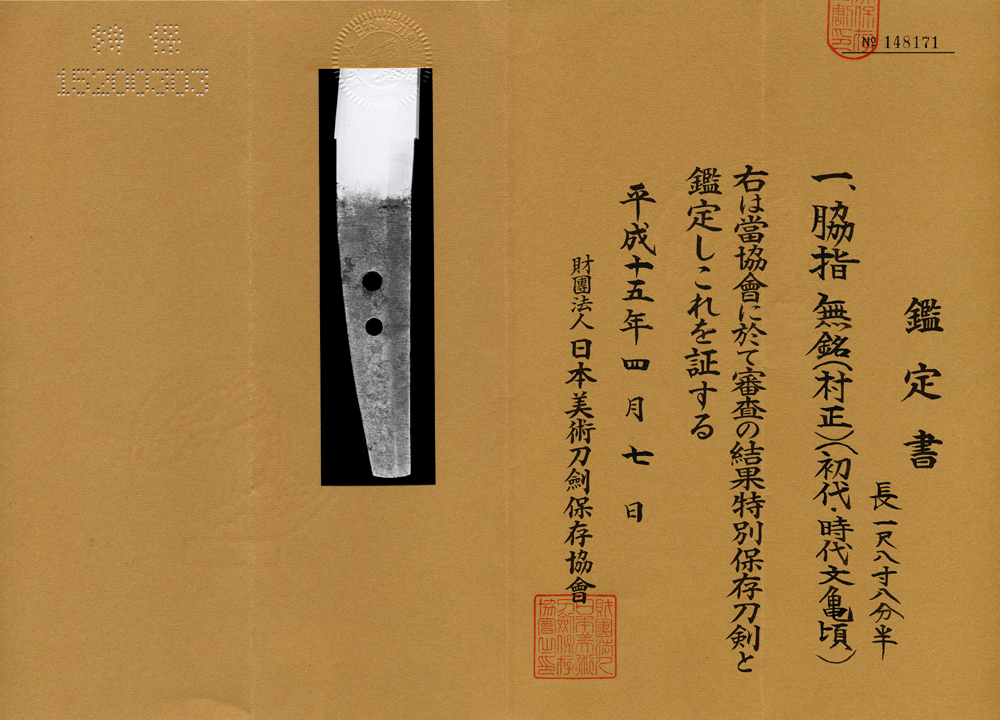 № 148171
鑑定書
長一尺八寸八分半
一、脇指 無銘(村正)(初代・時代文亀頃)
右は當協會に於て審査の結果特別保存刀剣と
鑑定しこれを証する
平成十五年四月七日
財團法人 日本美術刀劍保存協會
財團法人日本美術刀劍保存協會之印
特 保
15200303